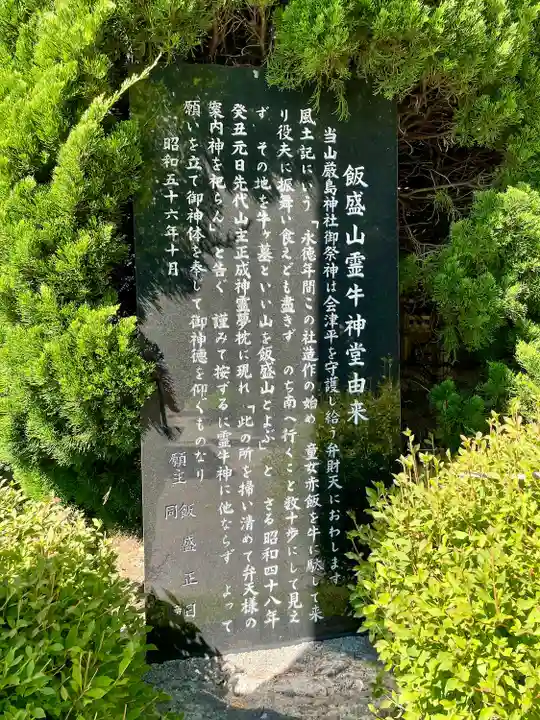 飯盛山霊牛神堂由来
当山厳島神社御祭神は会津平を守護し給う弁財天におわします
風土記にいう 「永徳年間この社造作の始め 童女赤飯を牛に駄して来
り役夫に振舞い食えども盡きず のち南へ行くこと数十歩にして見え
ず その地を牛ヶ墓といい山を飯盛山とよぶ」と さる昭和四十八年
癸丑元日先代山主正成神霊夢枕に現れ 「此の所を掃い清めて弁天様の
案内神を祀らん」と告ぐ 謹みて按ずるに霊牛神に他ならず よって
願いを立て御神体を奉して御神徳を仰ぐものなり
昭和五十六年十月
願主 飯盛正
同